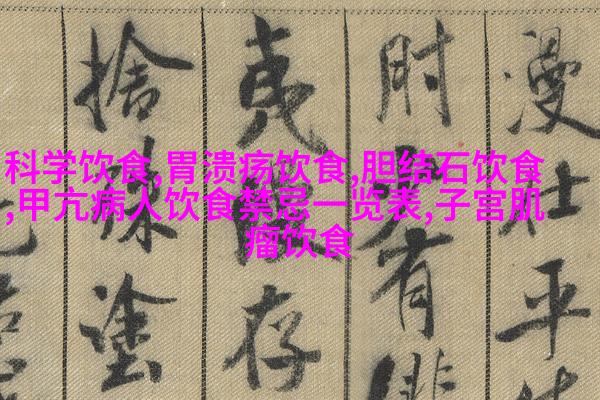 科学饮食,胃溃疡饮食,胆结石饮食
,甲亢病人饮食禁忌一览表,子宫肌
瘤饮食
漫仕平
时有
夷存
捨塗